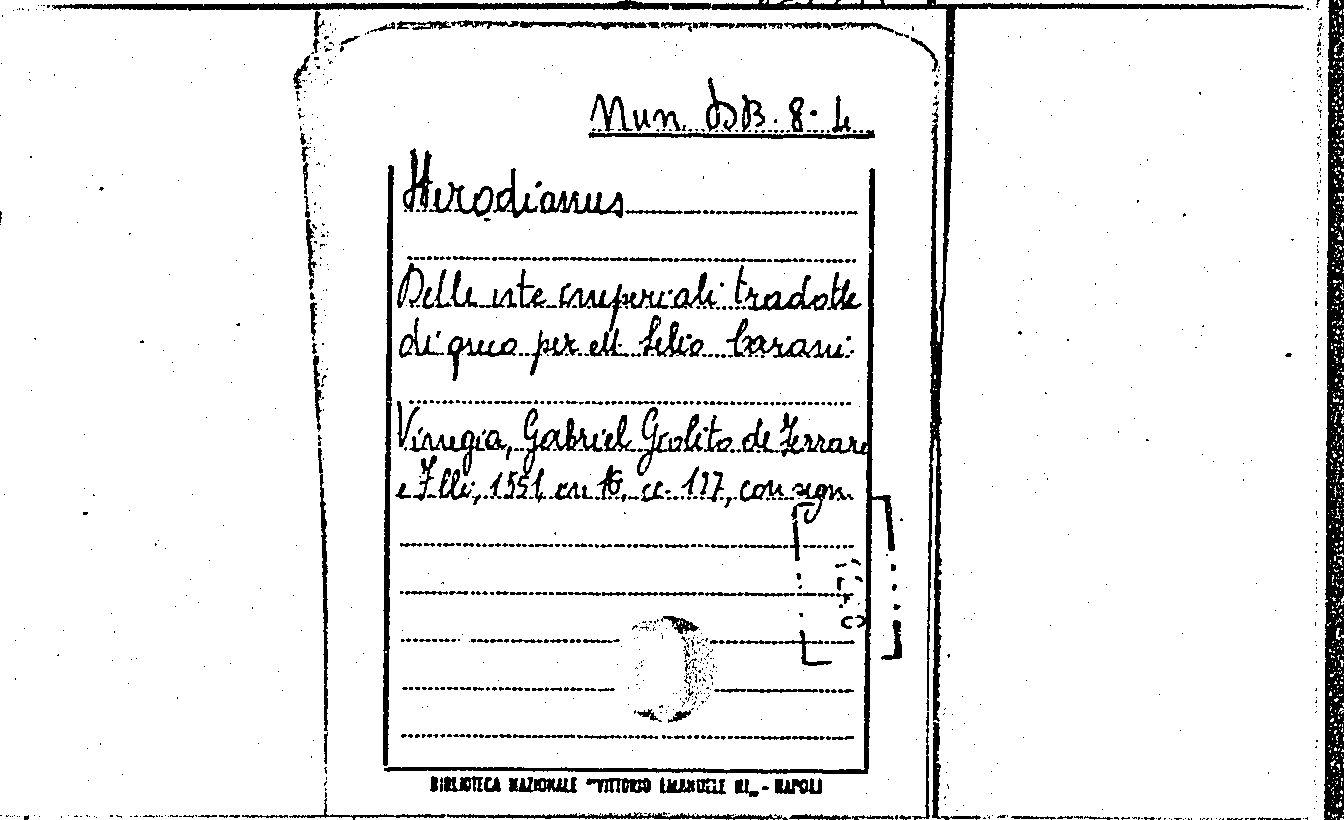 Mun. DB. 8. 4
Herodianus
Delle vite imperiali tradotte
di greco per M. Lelio Carani.
Vinegia, Gabriel Giolito de Ferrari
e F.lli, 1551, in 16, cc. 177, con segn.
BIBLIOTECA NAZIONALE "VITTORIO EMANUELE III„ - NAPOLI